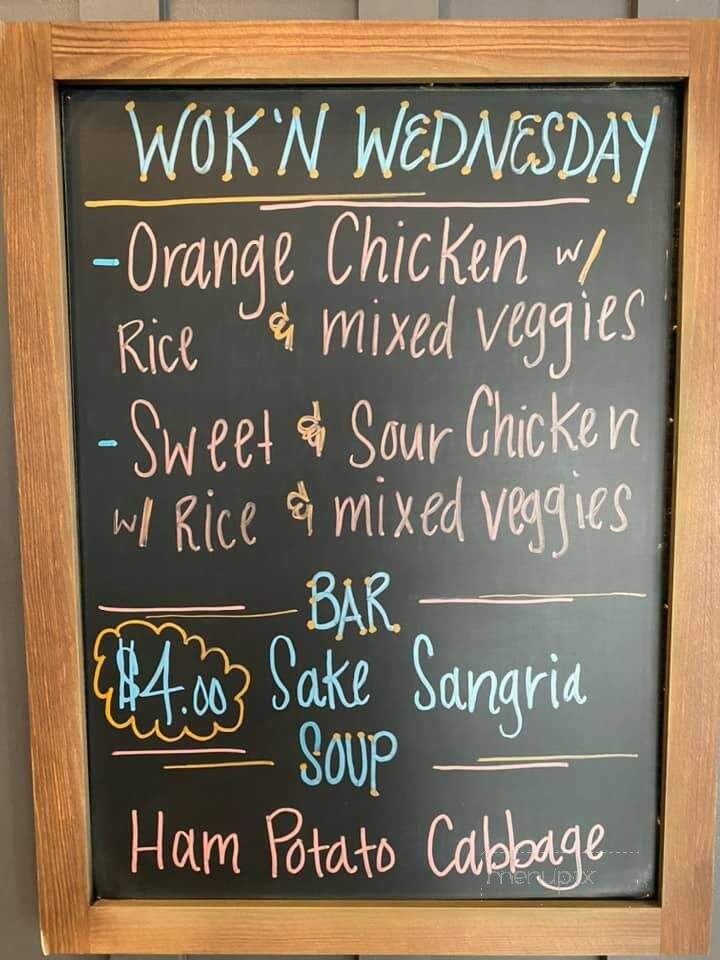 WOK'N WEDNESDAY
- Orange Chicken w/
Rice & mixed veggies
- Sweet & Sour Chicken
w/ Rice & mixed veggies
BAR
$4.00 Sake Sangria
SOUP
Ham Potato Cabbage
menupix